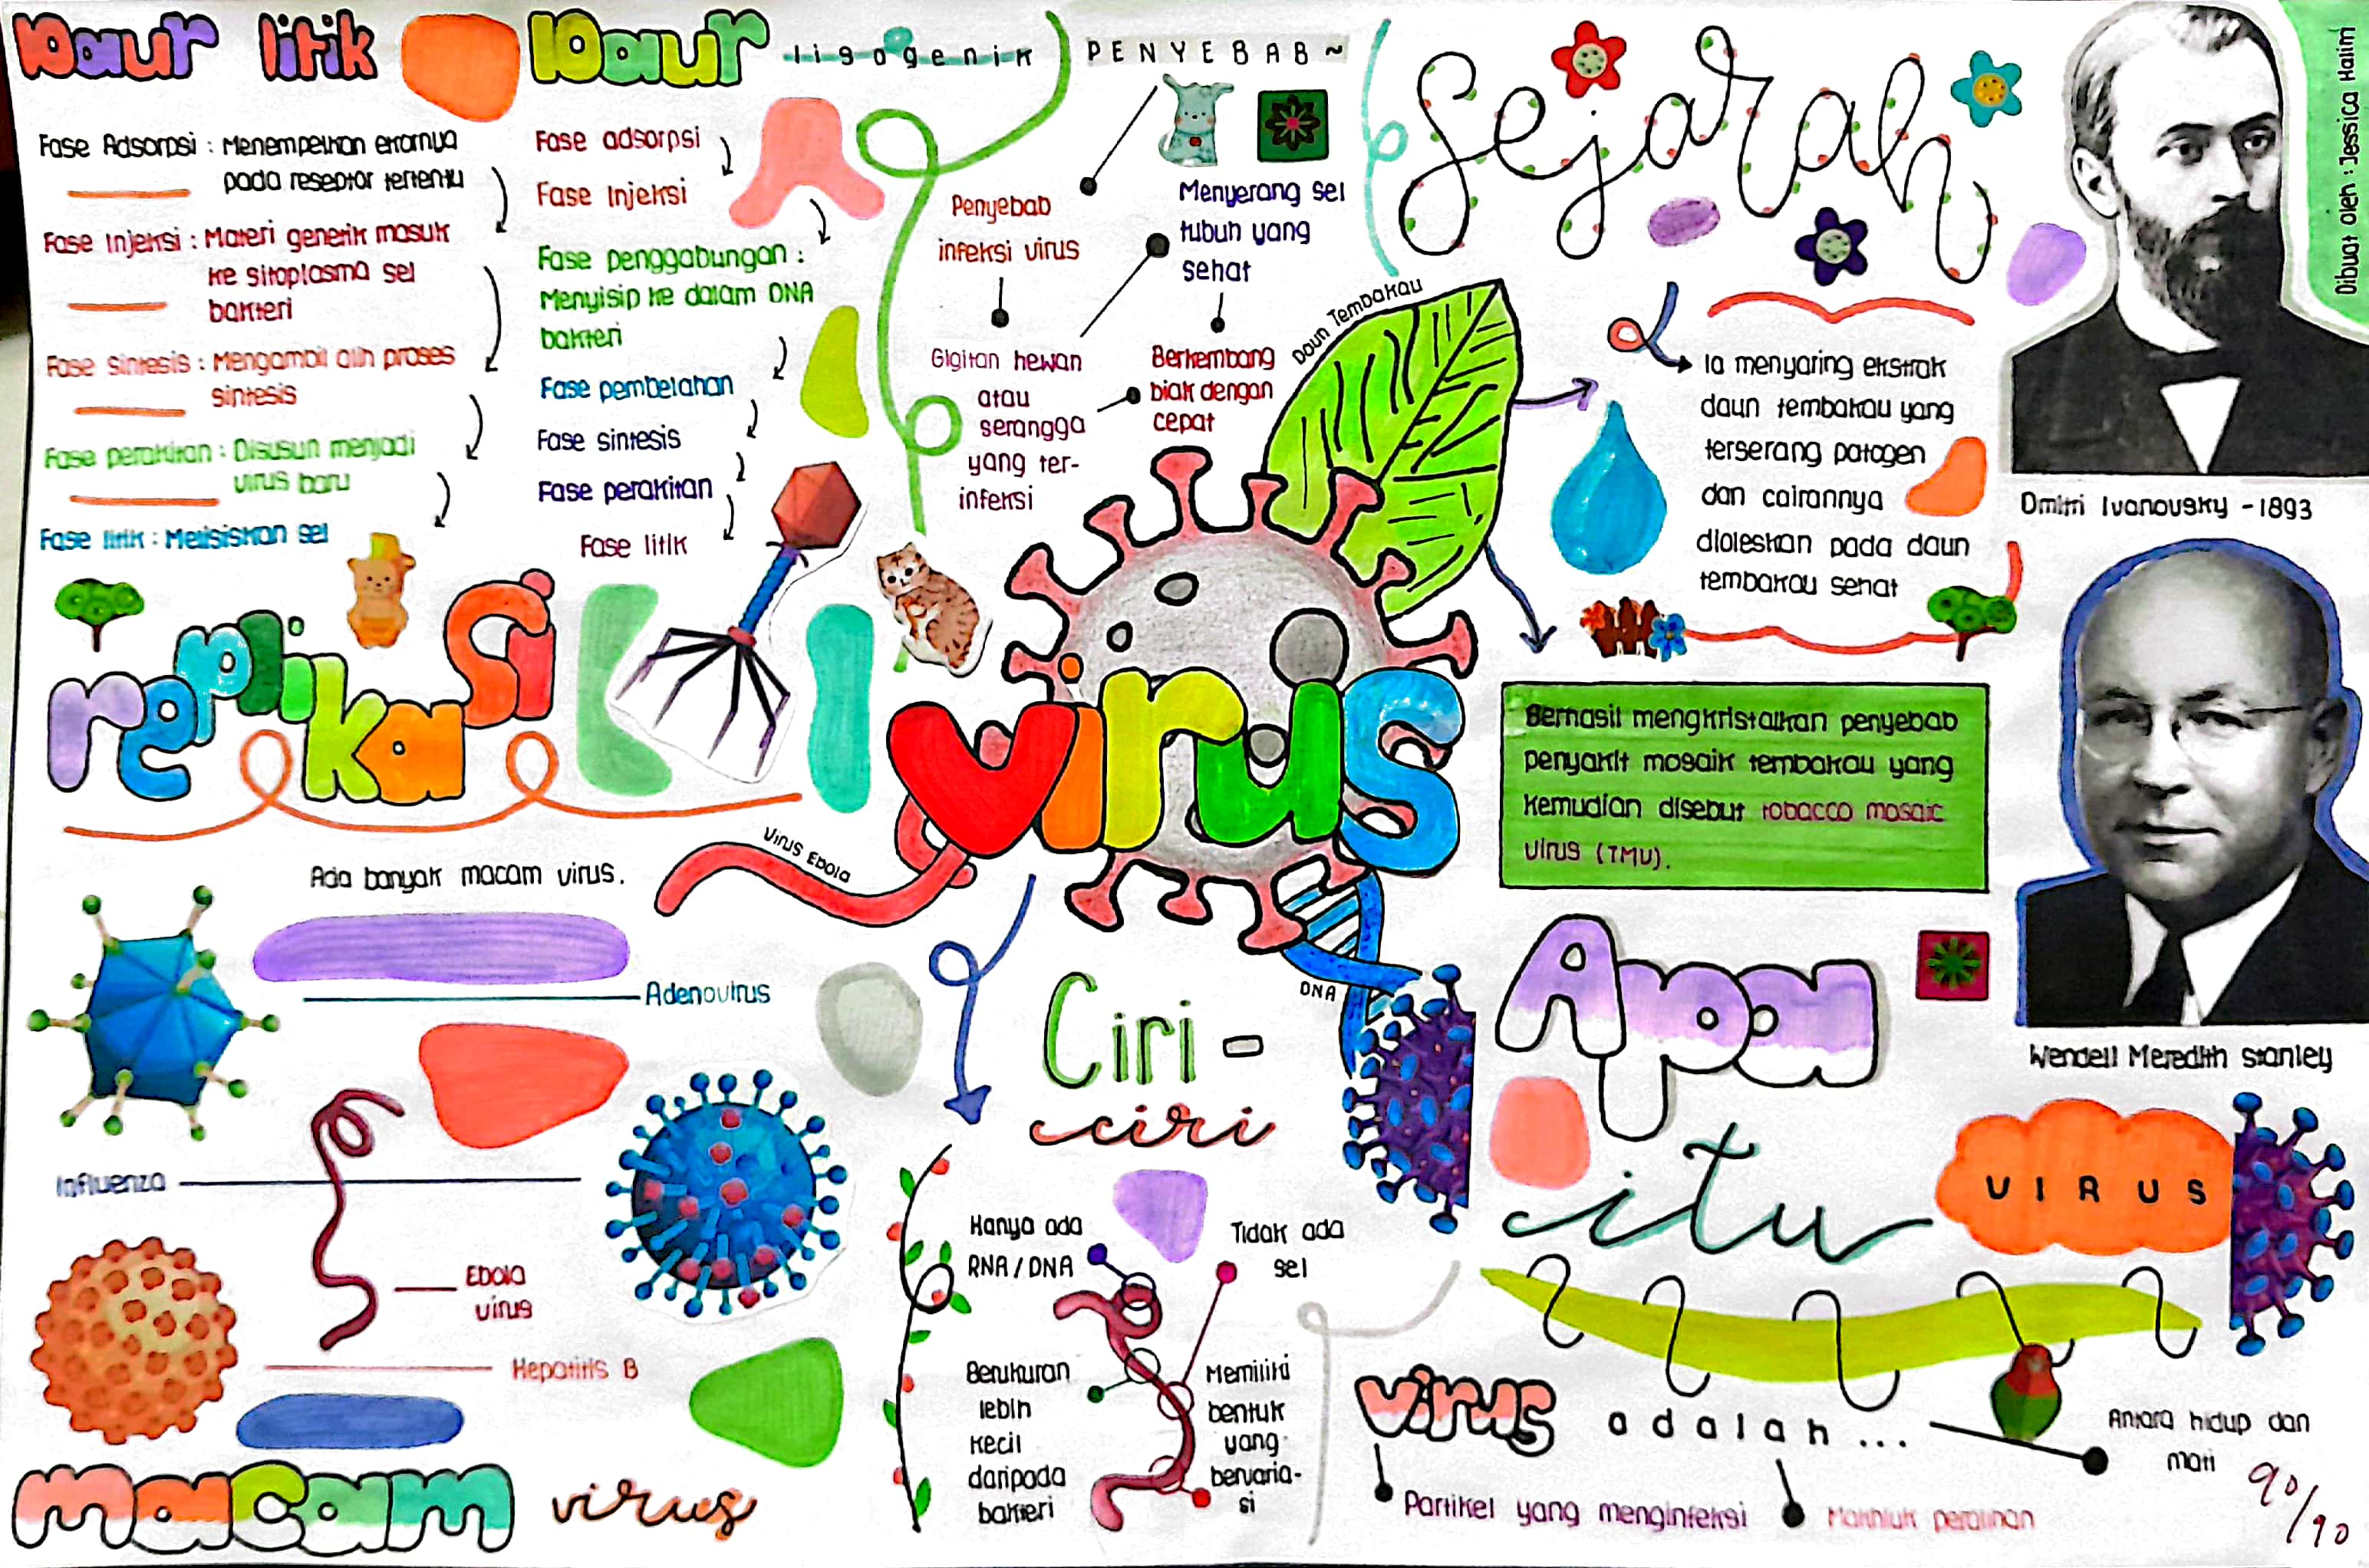 Daur litik
Fase Adsorpsi : Menempelkan ekornya
pada reseptor tertentu
Fase Injeksi : Materi genetik masuk
ke sitoplasma sel
bakteri
Fase sintesis : Mengambil alih proses
sintesis
Fase perakitan : Disusun menjadi
virus baru
Fase litik : Melisiskan sel
Daur lisogenik
Fase adsorpsi
Fase Injeksi
Fase penggabungan :
Menyisip ke dalam DNA
bakteri
Fase pembelahan
Fase sintesis
Fase perakitan
Fase litik
replikasi
PENYEBAB ~
Penyebab
infeksi virus
Gigitan hewan
atau
serangga
yang ter-
infeksi
Menyerang sel
tubuh yang
sehat
Berkembang
biak dengan
cepat
Daun Tembakau
Sejarah
Dibuat oleh : Jessica Halim
Ia menyaring ekstrak
daun tembakau yang
terserang patogen
dan cairannya
dioleskan pada daun
tembakau sehat
Dmitri Ivanovsky - 1893
Berhasil mengkristalkan penyebab
penyakit mosaik tembakau yang
kemudian disebut tobacco mosaic
virus (TMV).
Wendell Meredith Stanley
virus
Virus Ebola
DNA
Ada banyak macam virus.
Adenovirus
Influenza
Ebola
virus
Hepatitis B
macam virus
Ciri -
ciri
Hanya ada
RNA / DNA
Tidak ada
sel
Berukuran
lebih
kecil
daripada
bakteri
Memiliki
bentuk
yang
bervaria-
si
Apa
itu
VIRUS
virus adalah ...
Partikel yang menginfeksi
Makhluk peralihan
Antara hidup dan
mati
90/90